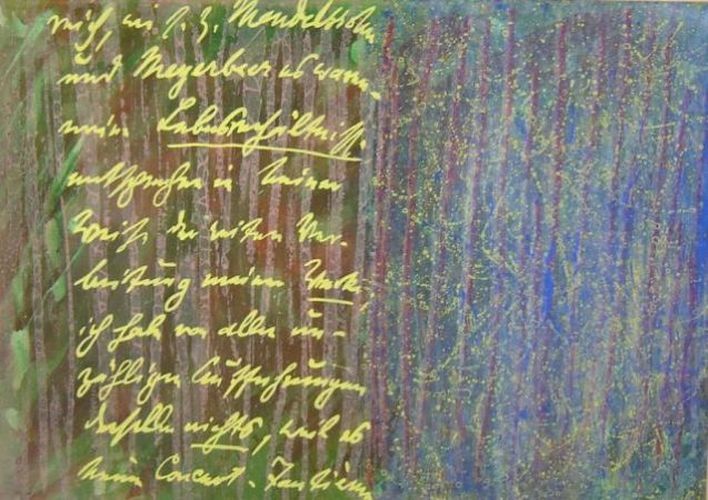 reich, wie z. B. Mendelssohn
und Meyerbeer es waren,
meine Lebensverhältnisse
entsprachen in keiner
Weise der weiten Ver-
breitung meiner Werke,
ich habe von allen un-
zähligen Aufführungen
derselben nichts, weil es
keine Concert-Tantiemen